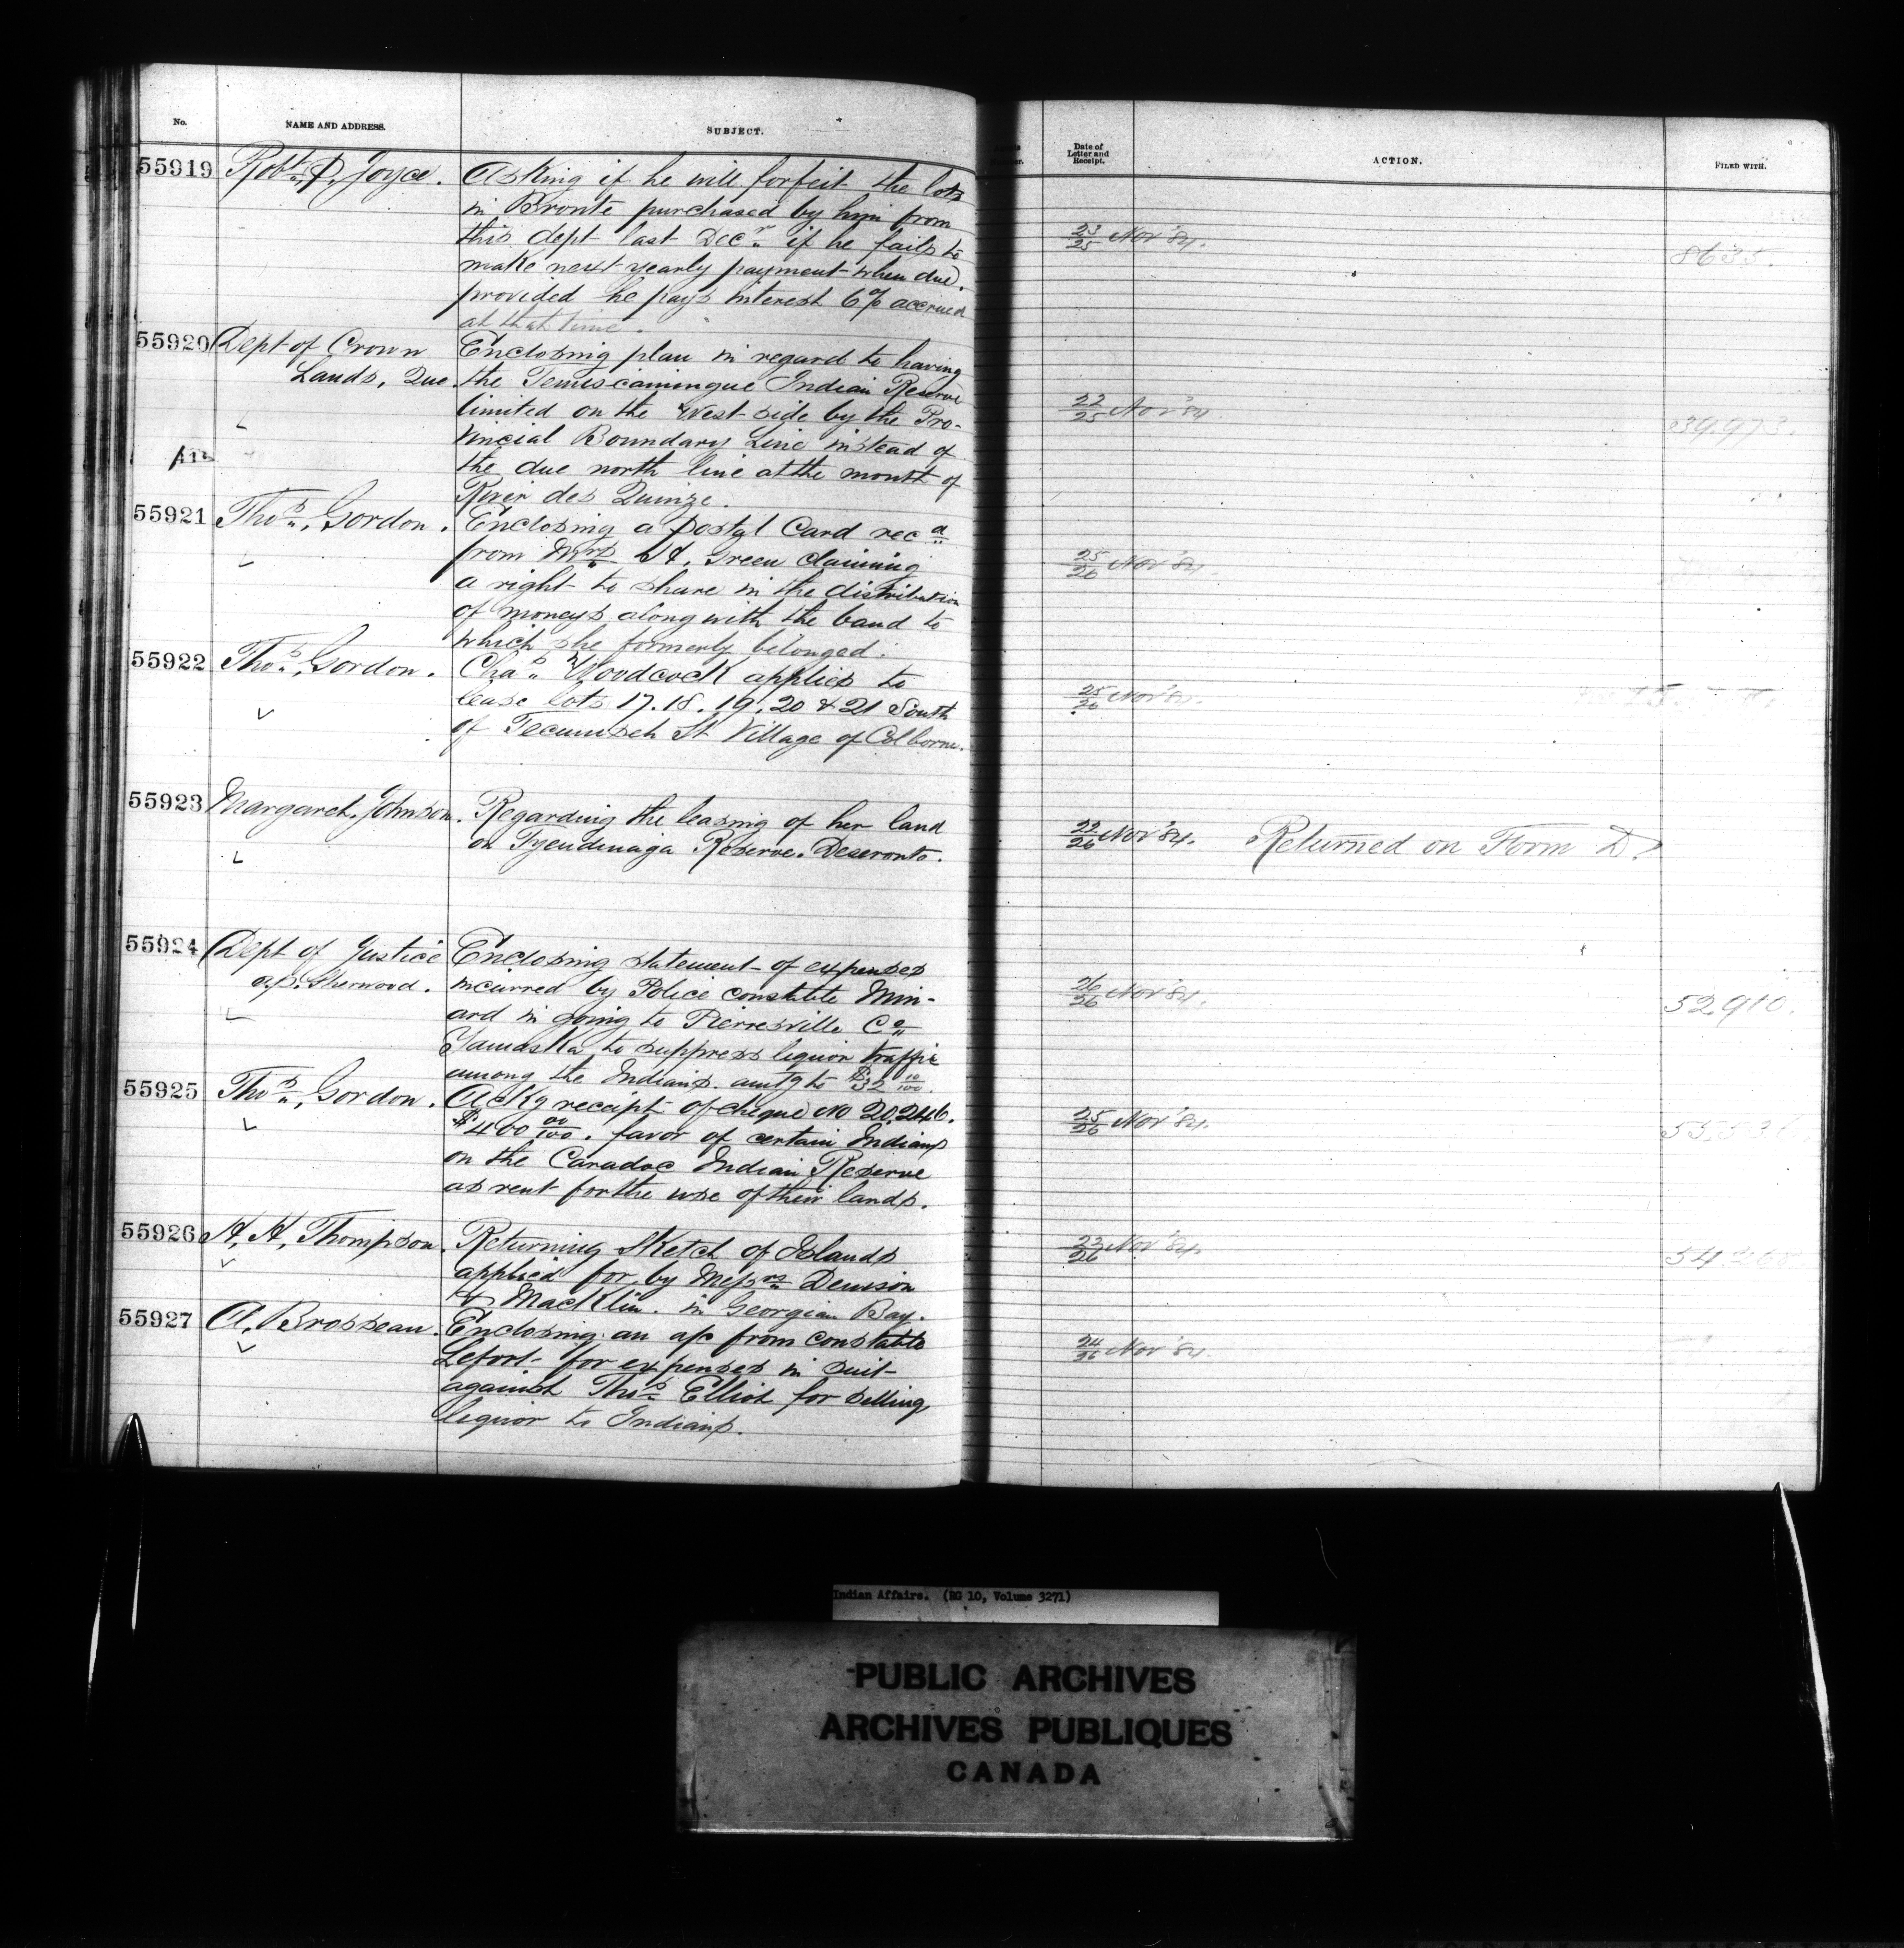 No. NAME AND ADDRESS. SUBJECT. Date of Letter and Receipt. ACTION. FILED WITH.
55919 Robt. P. Joyce. Asking if he will forfeit the lots
in Bronte purchased by him from
this dept last Decr if he fails to
make next yearly payment when due.
provided he pays interest 6% accrued
at that time.
23/25 Nov '84. 8635.
55920 Dept of Crown Enclosing plan in regard to having
Lands, Que. the Temiscamingue Indian Reserve
limited on the West side by the Pro-
vincial Boundary Line instead of
the due north line at the mouth of
River des Quinze.
22/25 Nov '84. 39,973.
55921 Thos. Gordon. Enclosing a Postal Card recd
from Mrs Green claiming
a right to share in the distribution
of moneys along with the band to
which she formerly belonged.
25/26 Nov '84
55922 Thos. Gordon. Chas. Woodcock applies to
lease lots 17. 18. 19. 20 & 21 South
of Tecumseh St Village of Colborne.
25/26 Nov '84.
55923 Margaret Johnson. Regarding the leasing of her land
on Tyendinaga Reserve. Deseronto.
22/26 Nov '84. Returned on Form D.
55924 Dept of Justice Enclosing statement of expenses
a.p. Sherwood. incurred by Police constable Min-
ard in going to Pierresville Co
Yamaska to suppress liquor traffic
among the Indians. amtg to $32 10/100.
26/26 Nov '84. 52,910.
55925 Thos. Gordon. Ackg receipt of cheque No 20,246.
$400 00/100. favor of certain Indians
on the Caradoc Indian Reserve
as rent for the use of their lands.
25/26 Nov '84.
55926 H. H. Thompson. Returning Sketch of Islands
applied for by Messrs Denison
& Macklin. in Georgian Bay.
23/26 Nov '84.
55927 A. Brosseau. Enclosing an a/c from constable
Lefort for expenses in suit
against Thos Elliot for selling
liquor to Indians.
24/26 Nov '84.
Indian Affairs. (RG 10, Volume 3271)
PUBLIC ARCHIVES
ARCHIVES PUBLIQUES
CANADA